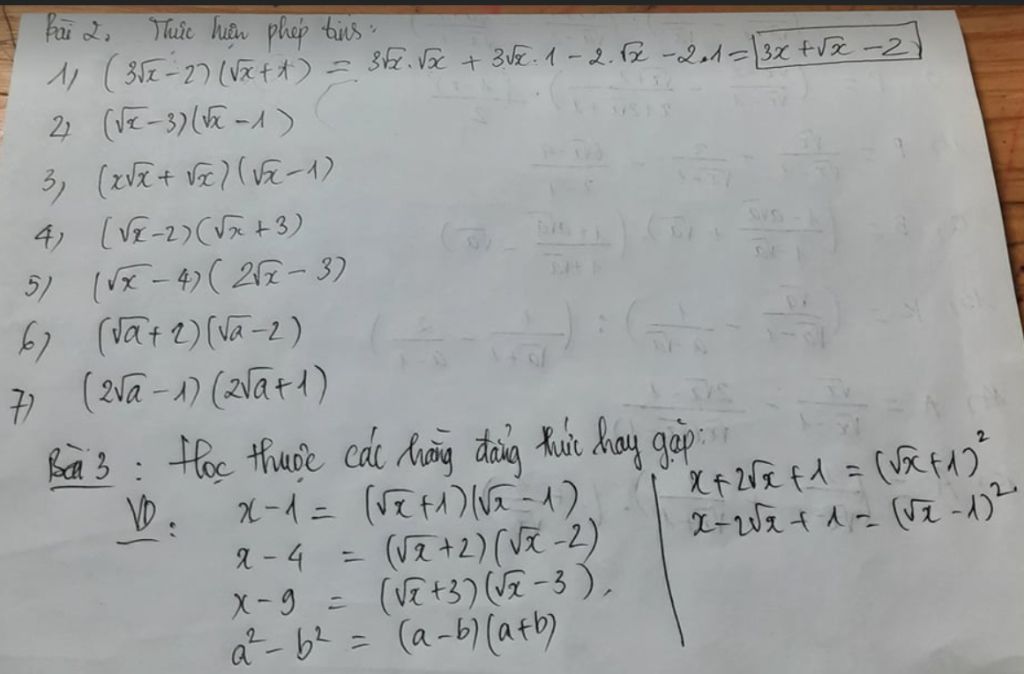 Bài 2. Thực hiện phép tính:
1) (3√x - 2)(√x + 1) = 3√x.√x + 3√x.1 - 2.√x - 2.1 = 3x + √x - 2
2) (√x - 3)(√x - 1)
3) (x√x + √x)(√x - 1)
4) (√x - 2)(√x + 3)
5) (√x - 4)(2√x - 3)
6) (√a + 2)(√a - 2)
7) (2√a - 1)(2√a + 1)
Bài 3: Học thuộc các hằng đẳng thức hay gặp:
VD: x - 1 = (√x + 1)(√x - 1)
x - 4 = (√x + 2)(√x - 2)
x - 9 = (√x + 3)(√x - 3).
a² - b² = (a - b)(a + b)
x + 2√x + 1 = (√x + 1)²
x - 2√x + 1 = (√x - 1)²